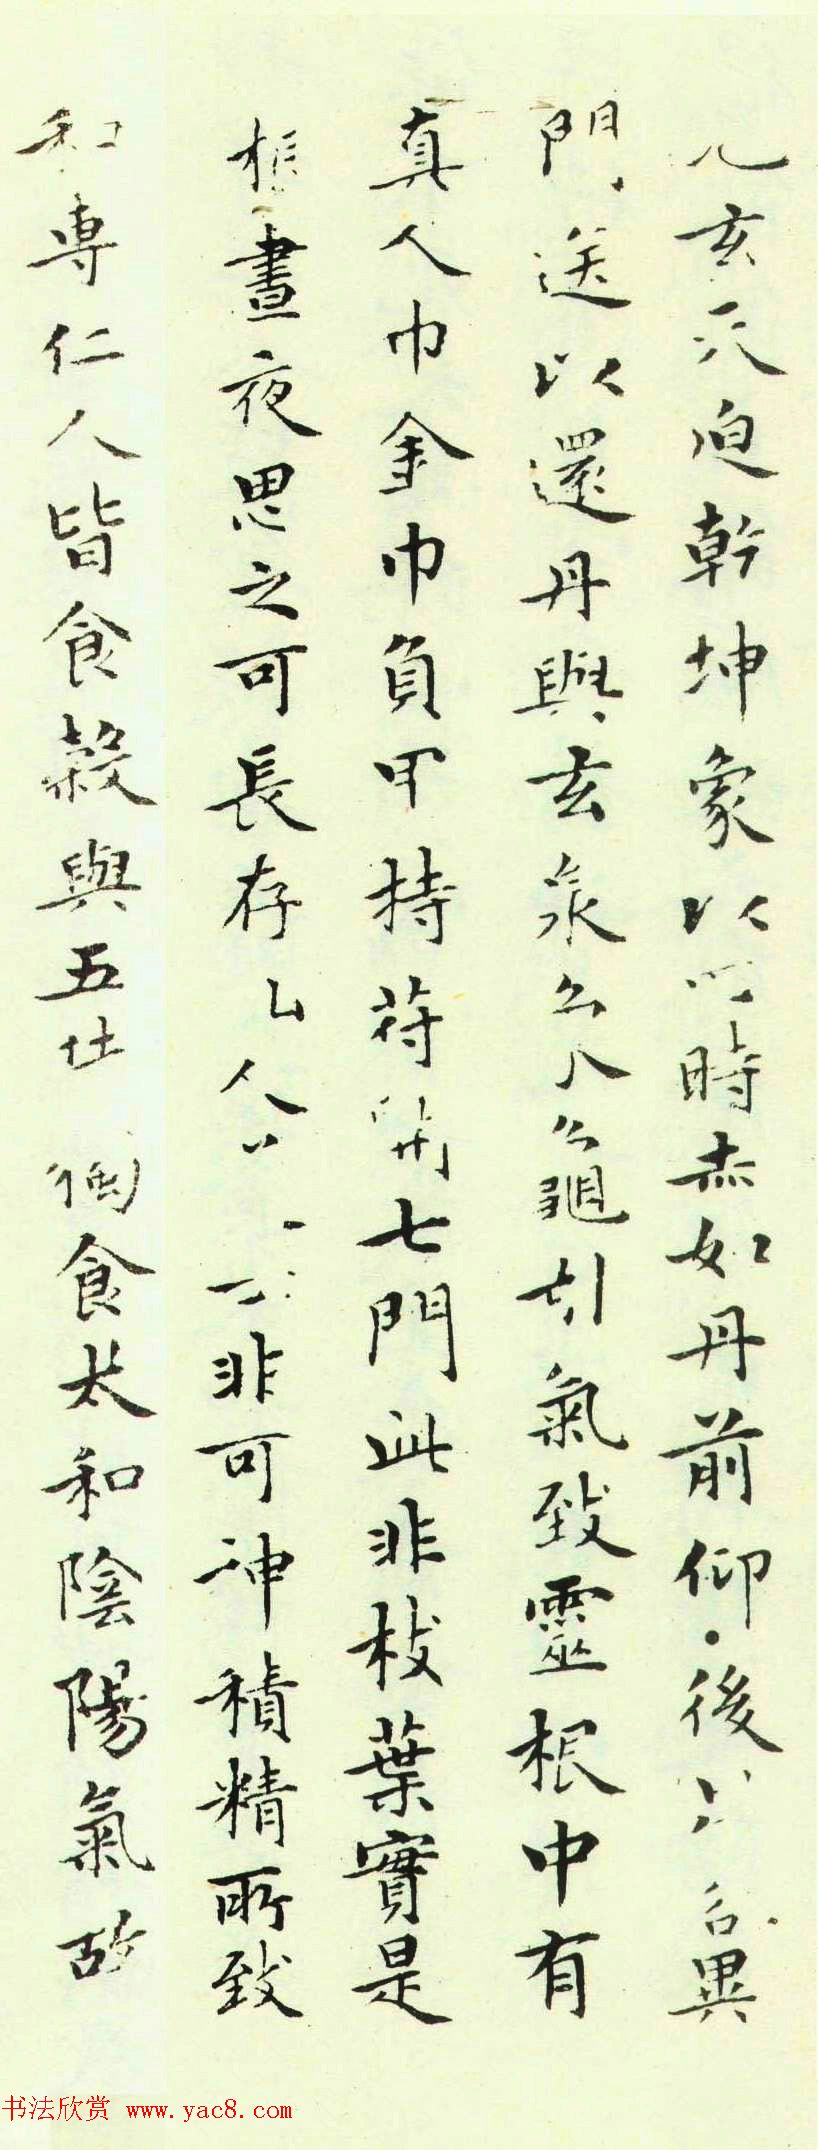 玄天迫乾坤象以四時赤如丹前仰後各異
門送以還丹與玄泉象龜引氣致靈根中有
真人巾金巾負甲持符開七門此非枝葉實是
根晝夜思之可長存仙人非可神積精所致
和專仁人皆食穀與五味獨食太和陰陽氣故
书法欣赏 www.yac8.com